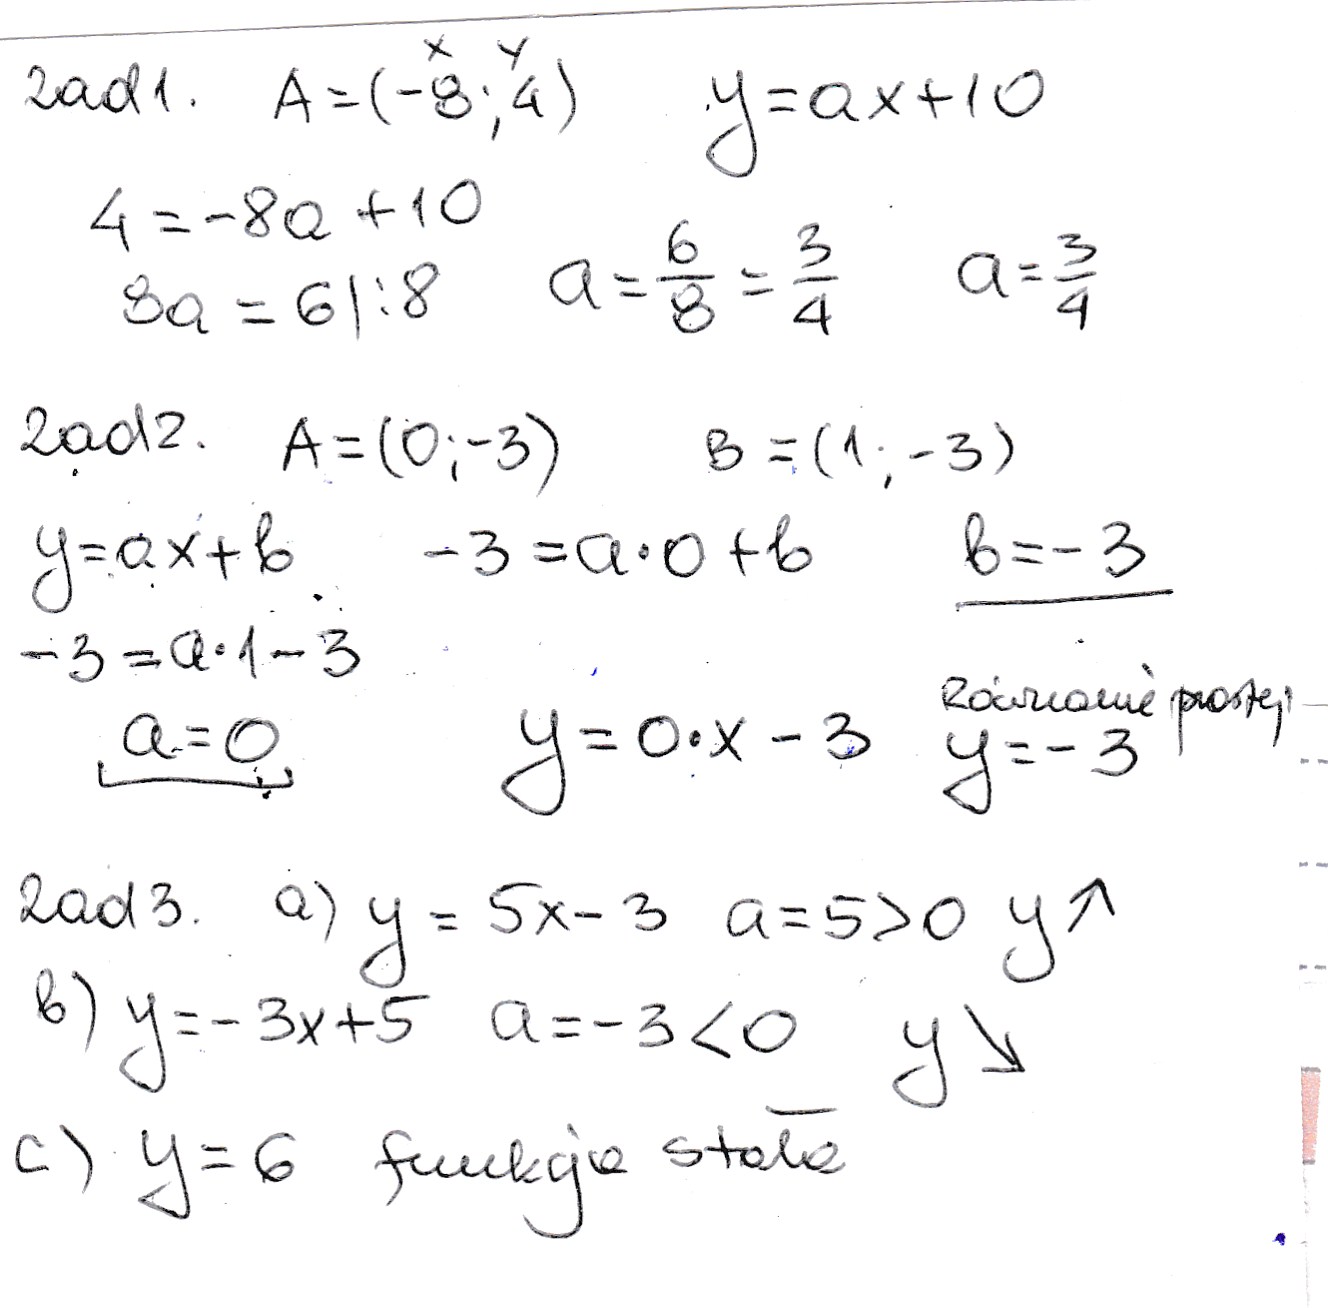 x y
Zad1. A=(-8;4) y=ax+10
4=-8a+10
8a=6|:8 a=6/8=3/4 a=3/4
Zad2. A=(0;-3) B=(1;-3)
y=ax+b -3=a·0+b b=-3
-3=a·1-3
Równanie prostej
a=0 y=0·x-3 y=-3
Zad3. a) y=5x-3 a=5>0 y↗
b) y=-3x+5 a=-3<0 y↘
c) y=6 funkcja stała